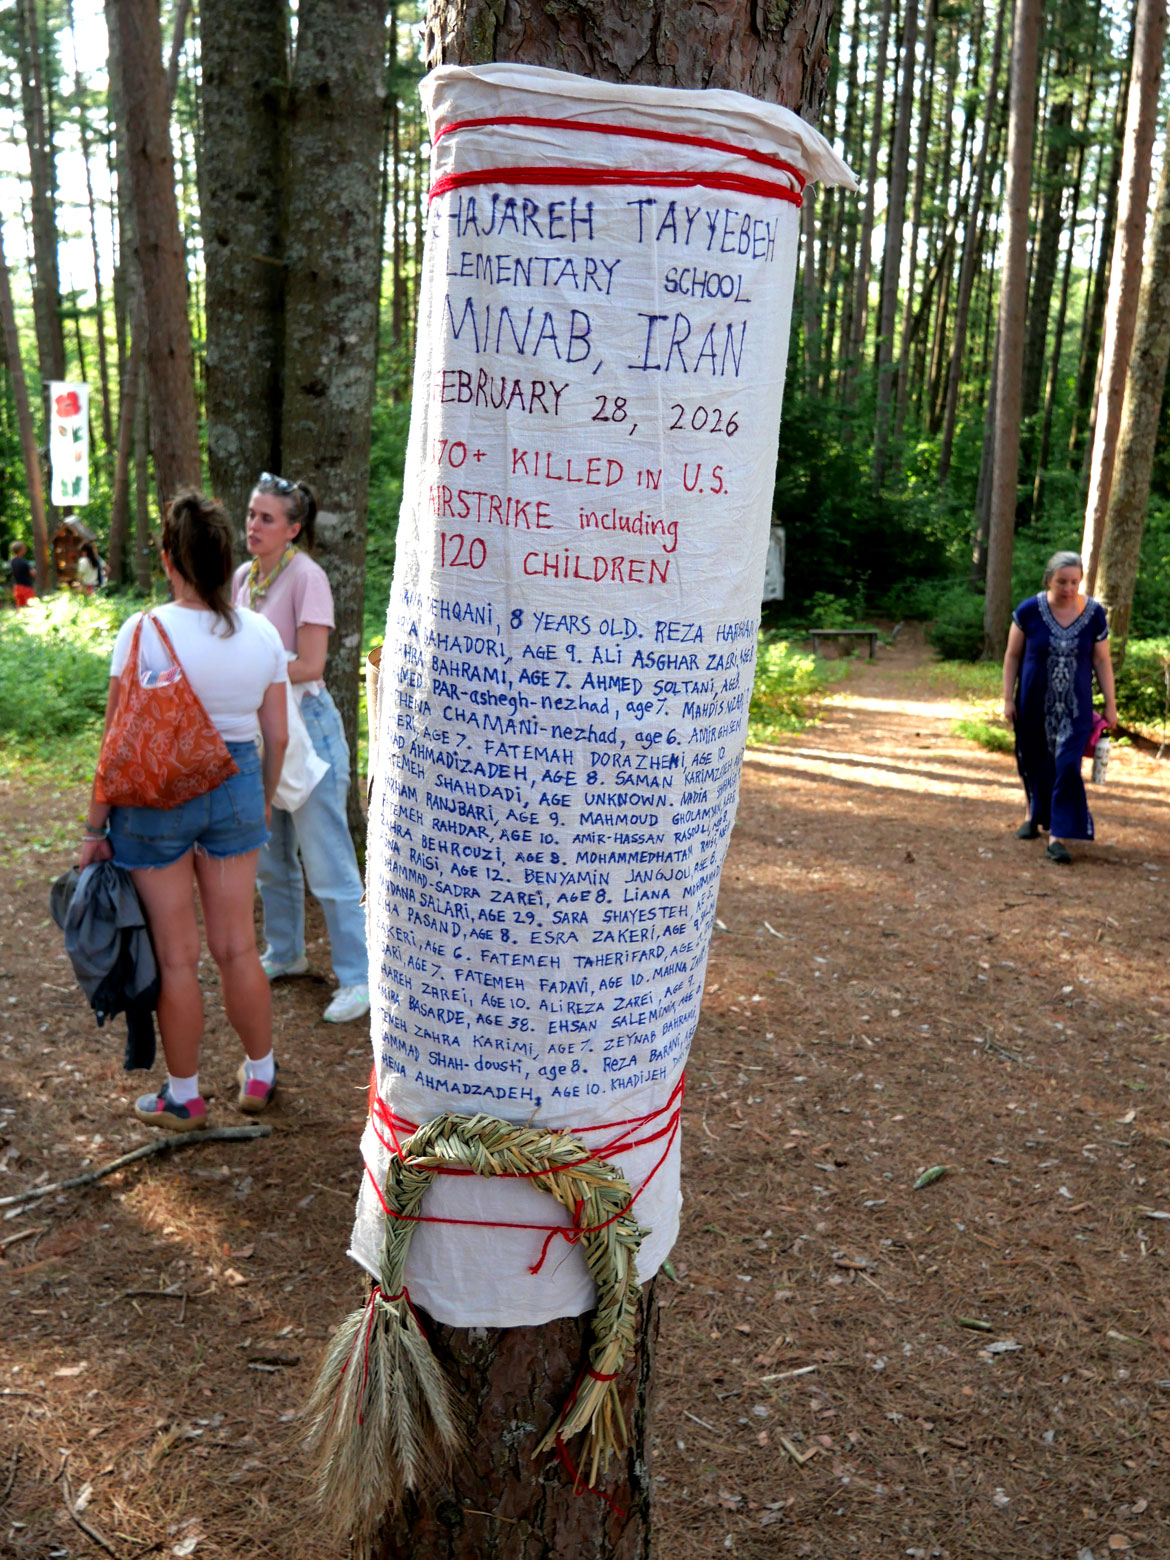 HAJAREH TAYYEBEH
LEMENTARY SCHOOL
MINAB, IRAN
FEBRUARY 28, 2026
70+ KILLED IN U.S.
AIRSTRIKE including
120 CHILDREN
EHQANI, 8 YEARS OLD. REZA
BAHADORI, AGE 9. ALI ASGHAR ZAERI,
BAHRAMI, AGE 7. AHMED SOLTANI, AGE
PAR-ashegh-nezhad, age 7. MAHDIS
CHAMANI-nezhad, age 6.
AGE 7. FATEMAH DORAZHEHI, AGE 10
AHMADIZADEH, AGE 8. SAMAN
SHAHDADI, AGE UNKNOWN. NADIA
RANJBARI, AGE 9. MAHMOUD
RAHDAR, AGE 10. AMIR-HASSAN
BEHROUZI, AGE 8. MOHAMMEDHATAM
RAISI, AGE 12. BENYAMIN JANGJOU, AGE
AMMAD-SADRA ZAREI, AGE 8. LIANA
SALARI, AGE 29. SARA SHAYESTEH
PASAND, AGE 8. ESRA ZAKERI, AGE
AKERI, AGE 6. FATEMEH TAHERIFARD, AGE
AGE 7. FATEMEH FADAVI, AGE 10. MAHNA
ZAREI, AGE 10. ALIREZA ZAREI, AGE 9.
BASARDE, AGE 38. EHSAN
ZAHRA KARIMI, AGE 7. ZEYNAB BAHRAMI,
AMMAD SHAH-dousti, age 8. REZA
AHMADZADEH, AGE 10. KHADIJEH